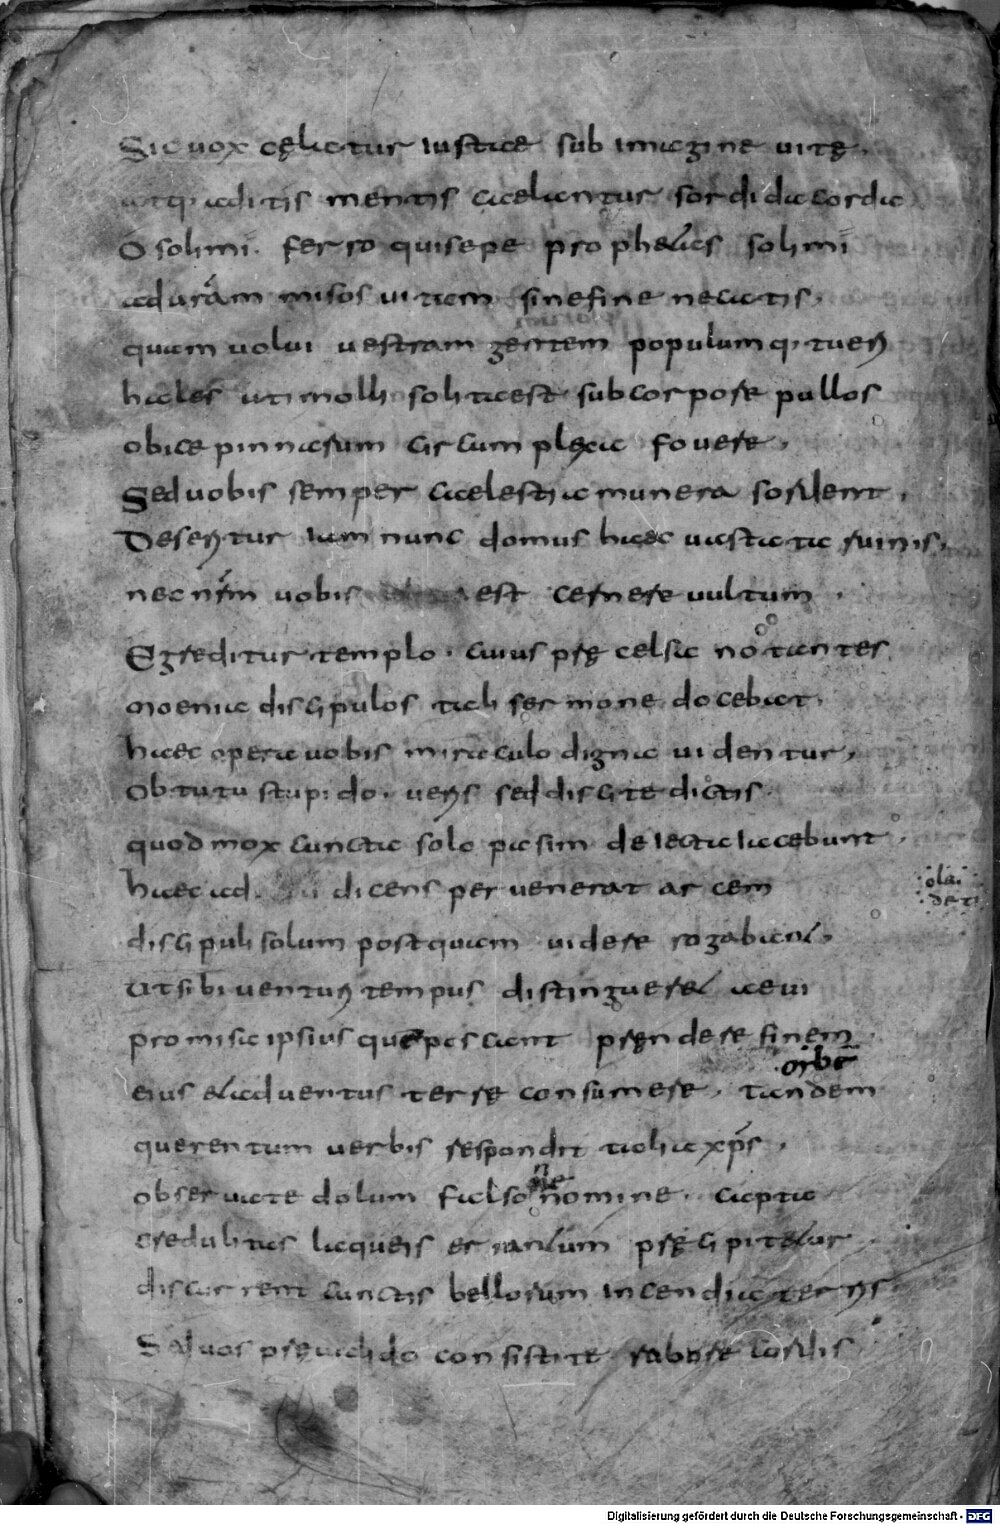 Sic uox celatur iustae sub imagine uitę.
atq; aditis mentis caelantur sordida corda
O solimi. ferro qui sepe prophetas solimi
ad uram misos uitam sine fine necatis.
quam uolui uestram gentem populumq; tueri
hales uti mollis solita est sub corpore pullos
obice pinnarum circum plexa fovere.
Sed uobis semper caelestia munera sordent.
Deseritur iam nunc domus haec uastata ruinis.
nec nrm uobis est cernere uultum.
Egreditur templo. cuius prę celsa notantes
moenia discipulos tali sermone docebat.
haec opera uobis miraculo digna uidentur.
Obtutu stupido. ueris sed discite dictis.
quod mox cuncta solo pasim deiecta iacebunt.
haec ad dicens peruenerat arcem
ola
deti
discipuli solum postquam uidere rogabant.
Ut sibi uenturi tempus distingueret aeui
promisa ipsius que poscant prendere finem
orbe
eius et aduentus terrę consumere. tandem
querentum uerbis respondit talia xps.
obseruate dolum falso nomine. capta
credulitas laqueis errantum pręcipitetur.
discurrent cunctis bellorum incendia terris.
Sed uos pręualido consistite robore cordis